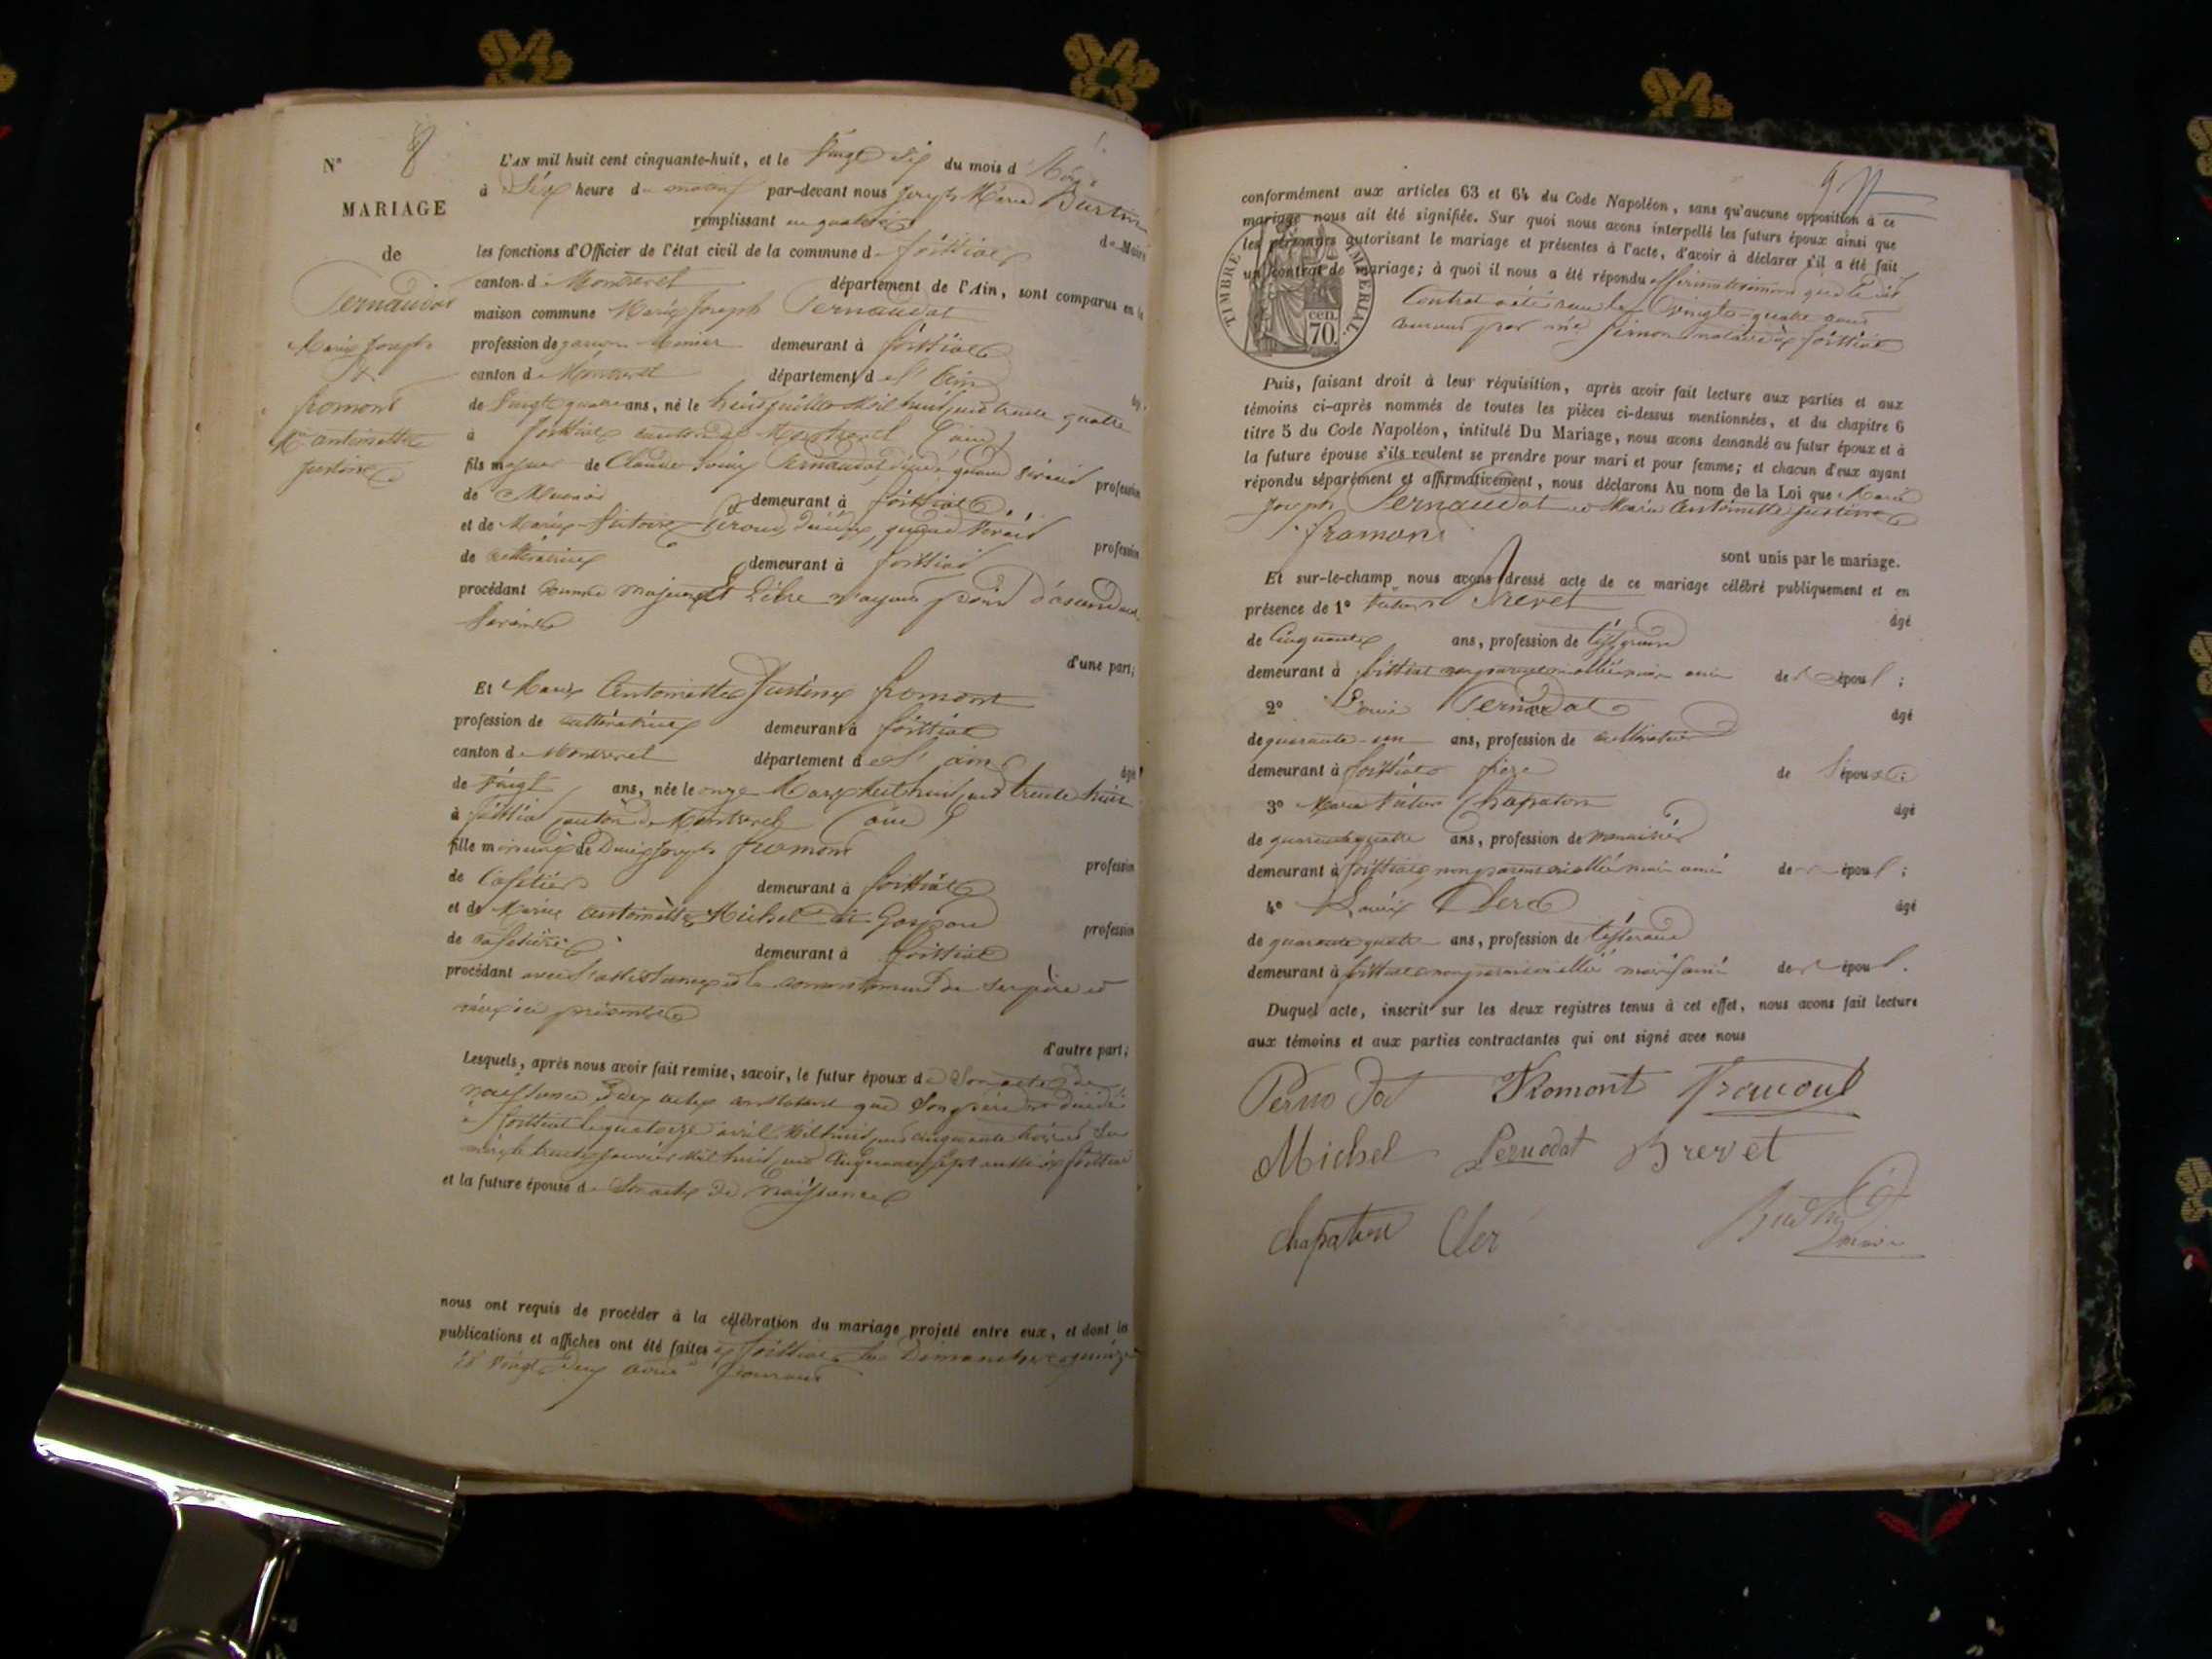 N° 8
MARIAGE
de
Pernaudat
Marie Joseph
&
fromont
M. antoinette
Justine
L'AN mil huit cent cinquante-huit, et le Vingt Six du mois d
à Six heure d matin par-devant nous Joseph Marie
remplissant en qualité de Maire
les fonctions d'Officier de l'état civil de la commune d foissiat
canton d Montrevel département de l'Ain, sont comparus en la
maison commune Marie Joseph Pernaudat
profession de garçon demeurant à foissiat
canton d Montrevel département d l'Ain âgé
de Vingt quatre ans, né le huit juillet Mil huit cent trente quatre
à foissiat canton de Montrevel (ain)
fils majeur de Claude Louis Pernaudat, décédé, quand vivait profession
de demeurant à foissiat
et de Marie décédée, quand vivait profession
de cultivatrice demeurant à foissiat
procédant comme majeur et libre n'ayant point d'ascendant
d'une part;
Et Marie Antoinette Justine fromont
profession de cultivatrice demeurant à foissiat
canton d Montrevel département d l'ain âgée
de Vingt ans, née le onze Mars Mil huit cent trente huit
à foissiat canton de Montrevel (ain)
fille mineure de Joseph fromont profession
de Cafetier demeurant à foissiat
et de Marie antoinette Michel dit profession
de cafetière demeurant à foissiat
procédant avec l'assistance et le consentement de ses père et
mère ici présents
d'autre part;
Lesquels, après nous avoir fait remise, savoir, le futur époux d Son acte de
naissance, Deux actes constatant que Son père est décédé
à foissiat le quatorze avril Mil huit cent cinquante trois et Sa
mère le trente janvier Mil huit cent cinquante sept aussi à foissiat
et la future épouse d Son acte de naissance
nous ont requis de procéder à la célébration du mariage projeté entre eux, et dont les
publications et affiches ont été faites à foissiat les Dimanches
Vingt courant
conformément aux articles 63 et 64 du Code Napoléon, sans qu'aucune opposition à ce
mariage nous ait été signifiée. Sur quoi nous avons interpellé les futurs époux ainsi que
les personnes autorisant le mariage et présentes à l'acte, d'avoir à déclarer s'il a été fait
un contrat de mariage; à quoi il nous a été répondu affirmativement que le dit
Contrat a été reçu le Vingt-quatre
courant par me notaire à foissiat
TIMBRE IMPÉRIAL
cen.
70.
Puis, faisant droit à leur réquisition, après avoir fait lecture aux parties et aux
témoins ci-après nommés de toutes les pièces ci-dessus mentionnées, et du chapitre 6
titre 5 du Code Napoléon, intitulé Du Mariage, nous avons demandé au futur époux et à
la future épouse s'ils veulent se prendre pour mari et pour femme; et chacun d'eux ayant
répondu séparément et affirmativement, nous déclarons Au nom de la Loi que Marie
Joseph Pernaudat et Marie Antoinette Justine
fromont
sont unis par le mariage.
Et sur-le-champ nous avons dressé acte de ce mariage célébré publiquement et en
présence de 1° Brevet âgé
de Cinquante ans, profession de
demeurant à foissiat non parent ni allié mais ami de l époux;
2° Louis Pernodat âgé
de quarante-un ans, profession de cultivateur
demeurant à foissiat frère de l'époux;
3° Marie Chapaton âgé
de quarante quatre ans, profession de
demeurant à foissiat non parent ni allié mais ami de époux;
4° Louis Clerc âgé
de quarante quatre ans, profession de
demeurant à foissiat non parent ni allié mais ami de époux.
Duquel acte, inscrit sur les deux registres tenus à cet effet, nous avons fait lecture
aux témoins et aux parties contractantes qui ont signé avec nous
Perno Dat Fromont
Michel Pernodat Brevet
Chapaton Cler